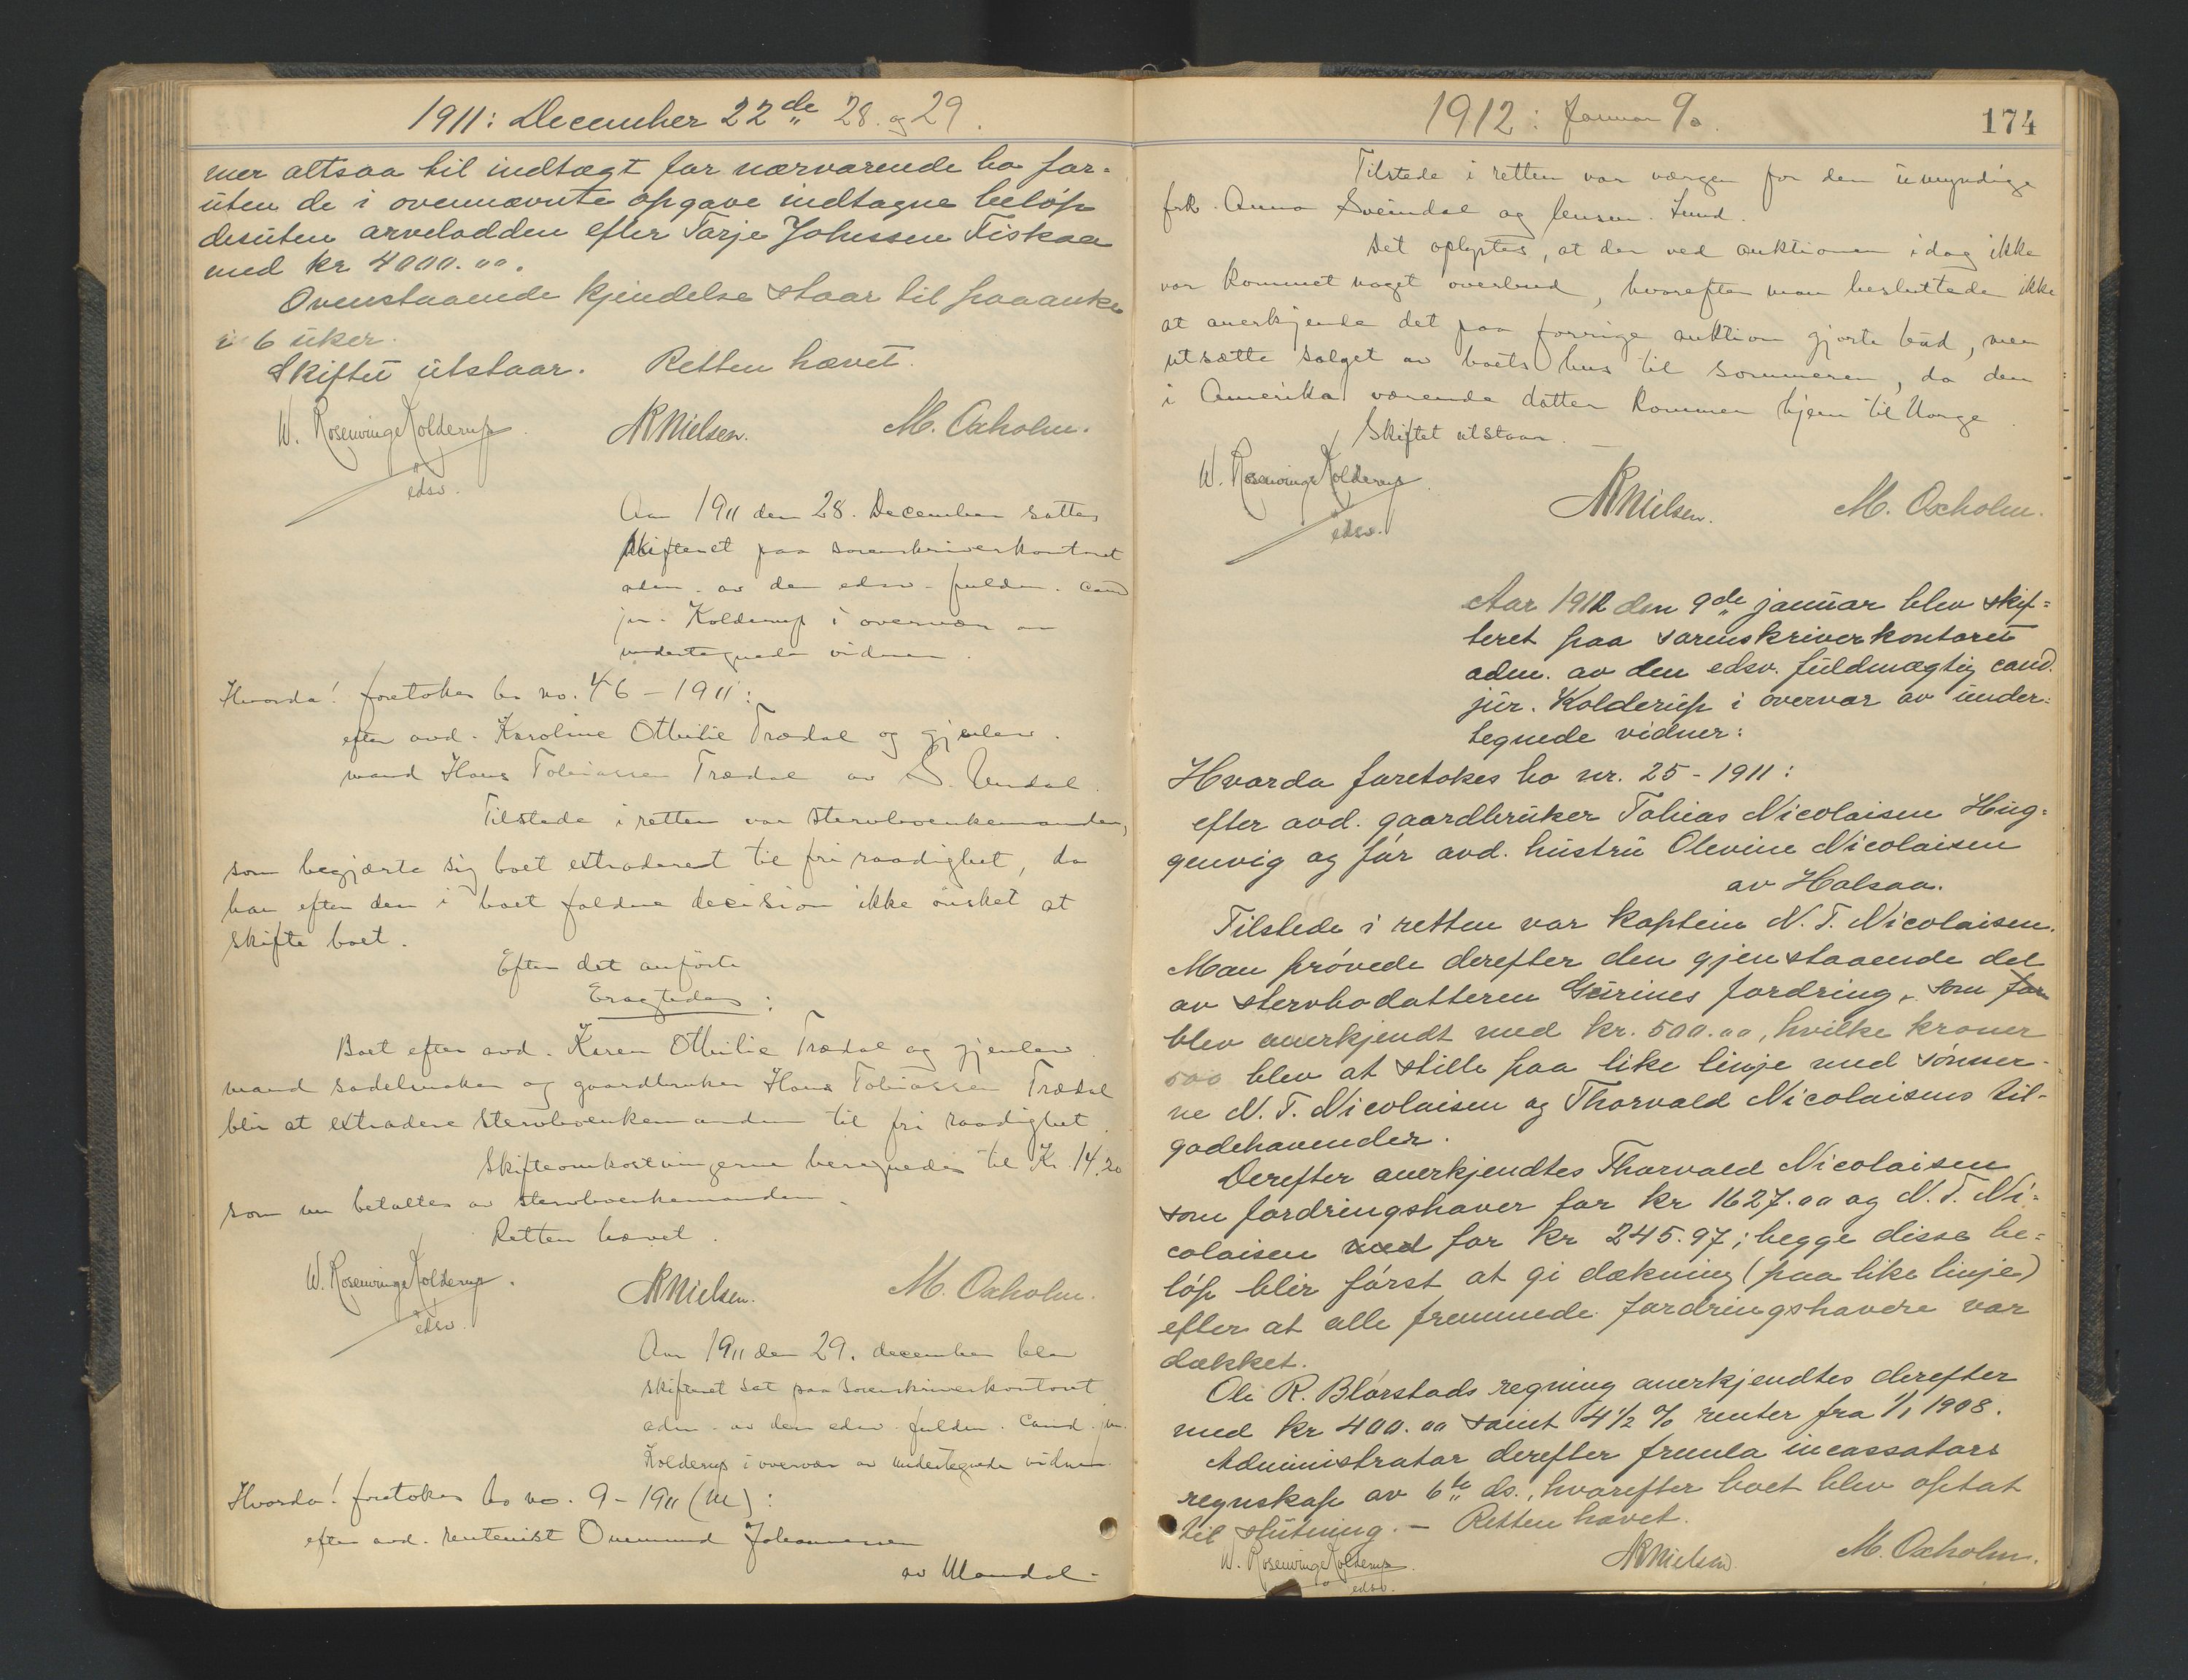 1911: December 22de 28. og 29.
mer altsaa til indtægt for nærværende bo for-
uten de i ovennævnte opgave indtagne beløp
desuten arvelodden efter Tarje Johnssen Fiskaa
med kr 4000.00.
Ovenstaaende kjendelse staar til paaanke
i 6 uker.
Skiftet utstaar. Retten hævet.
W. Rosenvinge Kolderup
edsv.
NNielsen.
M. Oxholm.
Aar 1911 den 28. December sattes
skifteret paa sorenskriverkontoret
adm. av den edsv. fuldm. cand
jur. Kolderup i overvær av
undertegnede vidner.
Hvorda! foretokes bo no. 46 – 1911:
efter avd. Karoline Othilie Trædal og gjenlev.
mand Hans Tobiassen Trædal av S. Undal.
Tilstede i retten var stervboenkemanden,
som begjærte sig boet extraderet til fri raadighet, da
han efter den i boet faldne decision ikke ønsket at
skifte boet.
Efter det anførte
Eragtedes:
Boet efter avd. Karen Othilie Trædal og gjenlev.
mand sadelmaker og gaardbruker Hans Tobiassen Trædal
blir at extradere stervboenkemanden til fri raadighet.
Skifteomkostningerne beregnedes til Kr. 14,20
som nu betaltes av stervboenkemanden.
Retten hævet.
W. Rosenvinge Kolderup.
edsv.
NNielsen.
M. Oxholm.
Aar 1911 den 29. december blev
skifteret sat paa sorenskriverkontoret
adm. av den edsv. fuldm. cand. jur.
Kolderup i overvær av undertegnede vidner.
Hvorda! foretokes bo no. 9 – 1911 (M):
efter avd. rentenist Ommund Johannessen
av Mandal –
1912: Januar 9.
174
Tilstede i retten var værgen for den umyndige
frk. Anna Sveindal og lensm. Lund.
Det oplystes, at der ved auktionen idag ikke
var kommet noget overbud, hvorefter man besluttede ikke
at anerkjende det paa forrige auktion gjorte bud, men
utsætte salget av boets hus til sommeren, da den
i Amerika værende datter kommer hjem til Norge.
Skiftet utstaar. –
W. Rosenvinge Kolderup.
edsv.
NNielsen.
M. Oxholm.
Aar 1912 den 9de januar blev skif=
teret paa sorenskriverkontoret
adm. av den edsv. fuldmægtig cand.
jur. Kolderup i overvær av under=
tegnede vidner:
Hvorda foretokes bo nr. 25 - 1911:
efter avd. gaardbruker Tobias Nicolaisen Hug=
genvig og før avd. hustru Olevine Nicolaisen
av Halsaa.
Tilstede i retten var kaptein N. T. Nicolaisen.
Man prøvede derefter den gjenstaaende del
av stervbodatteren Gurines fordring, som for
blev anerkjendt med kr. 500.00, hvilke kroner
500 blev at stille paa like linje med sønner-
ne N. T. Nicolaisen og Thorvald Nicolaisens til-
godehavender.
Derefter anerkjendtes Thorvald Nicolaisen
som fordringshaver for kr 1627.00 og N. T. Ni=
colaisen med for kr 245.97; begge disse be=
løp blir først at gi dækning (paa like linje)
efter at alle fremmede fordringshavere var
dækket.
Ole R. Blørstads regning anerkjendtes derefter
med kr 400.00 samt 4 1/2 % renter fra 1/1 1908.
Administrator derefter fremla incassators
regnskap av 6te ds., hvorefter boet blev optat
til slutning. – Retten hævet.
W. Rosenvinge Kolderup.
edsv.
NNielsen.
M. Oxholm.